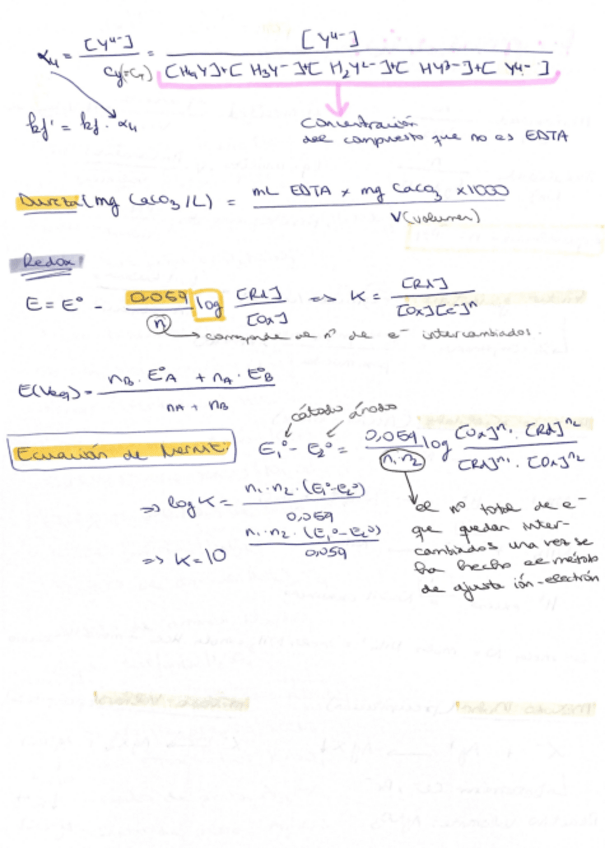 α₄ = [Y⁴⁻] / Cy(=C_T) = [Y⁴⁻] / [H₄Y]+[H₃Y⁻]+[H₂Y²⁻]+[HY³⁻]+[Y⁴⁻]
kf' = kf · α₄
Concentración
del compuesto que no es EDTA
Dureza (mg CaCO₃/L) = mL EDTA × mg CaCO₃ ×1000 / V(volumen)
Redox:
E = E° - 0,059 / n log [Rd] / [Ox] => K = [Rd] / [Ox][e⁻]ⁿ
corresponde al nº de e⁻ intercambiados.
E(Veq) = nB · E°A + nA · E°B / nA + nB
cátodo ánodo
Ecuación de Nernst: E₁° - E₂° = 0,059 / n₁·n₂ log [Ox]ⁿ¹ · [Rd]ⁿ² / [Rd]ⁿ¹ · [Ox]ⁿ²
=> log K = n₁ · n₂ · (E₁°-E₂°) / 0,059
=> K = 10 n₁ · n₂ · (E₁°-E₂°) / 0,059
el nº total de e⁻
que quedan inter-
cambiados una vez se
ha hecho el método
de ajuste ión-electrón